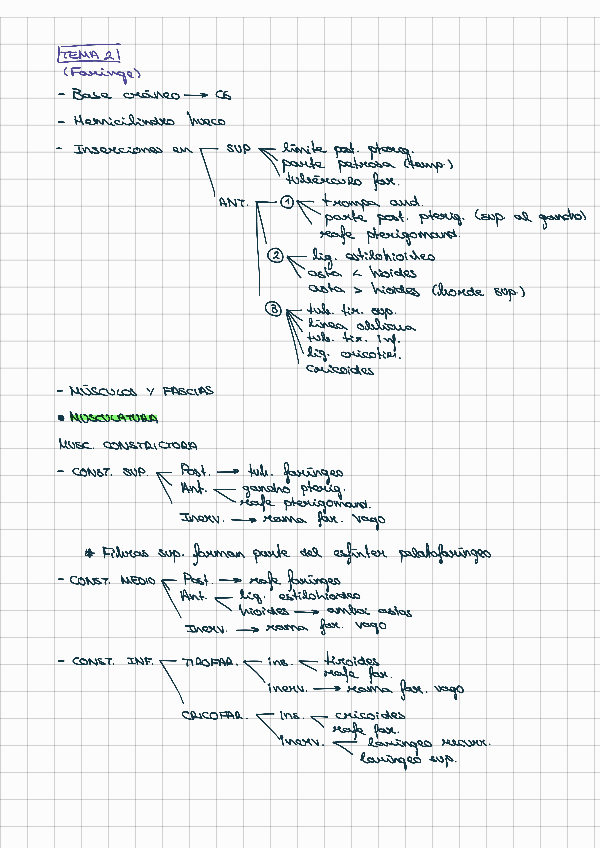 TEMA 21
(Faringe)
- Base cráneo → C6
- Hemicilindro hueco
- Inserciones en SUP límite post. pterig.
parte petrosa (temp)
tubérculo far.
ANT. ① trompa aud.
parte post. pterig. (sup al gancho)
rafe pterigomand.
② lig. estilohioideo
asta < hioides
asta > hioides (borde sup.)
③ tub. tir. sup.
línea oblicua
tub. tir. inf.
lig. cricotir.
cricoides
- MÚSCULOS Y FASCIAS
• MUSCULATURA
MUSC. CONSTRICTORA
- CONST. SUP. Post. → tub. faríngeo
Ant. gancho pterig.
rafe pterigomand.
Inerv. → rama far. vago
* Fibras sup. forman parte del esfínter palatofaríngeo
- CONST. MEDIO Post. → rafe faríngeo
Ant. lig. estilohioideo
hioides → ambas astas
Inerv. → rama far. vago
- CONST. INF. TIROFAR. ins. tiroides
rafe far.
inerv. → rama far. vago
CRICOFAR. ins. cricoides
rafe far.
inerv. laríngeo recurr.
laríngeo sup.